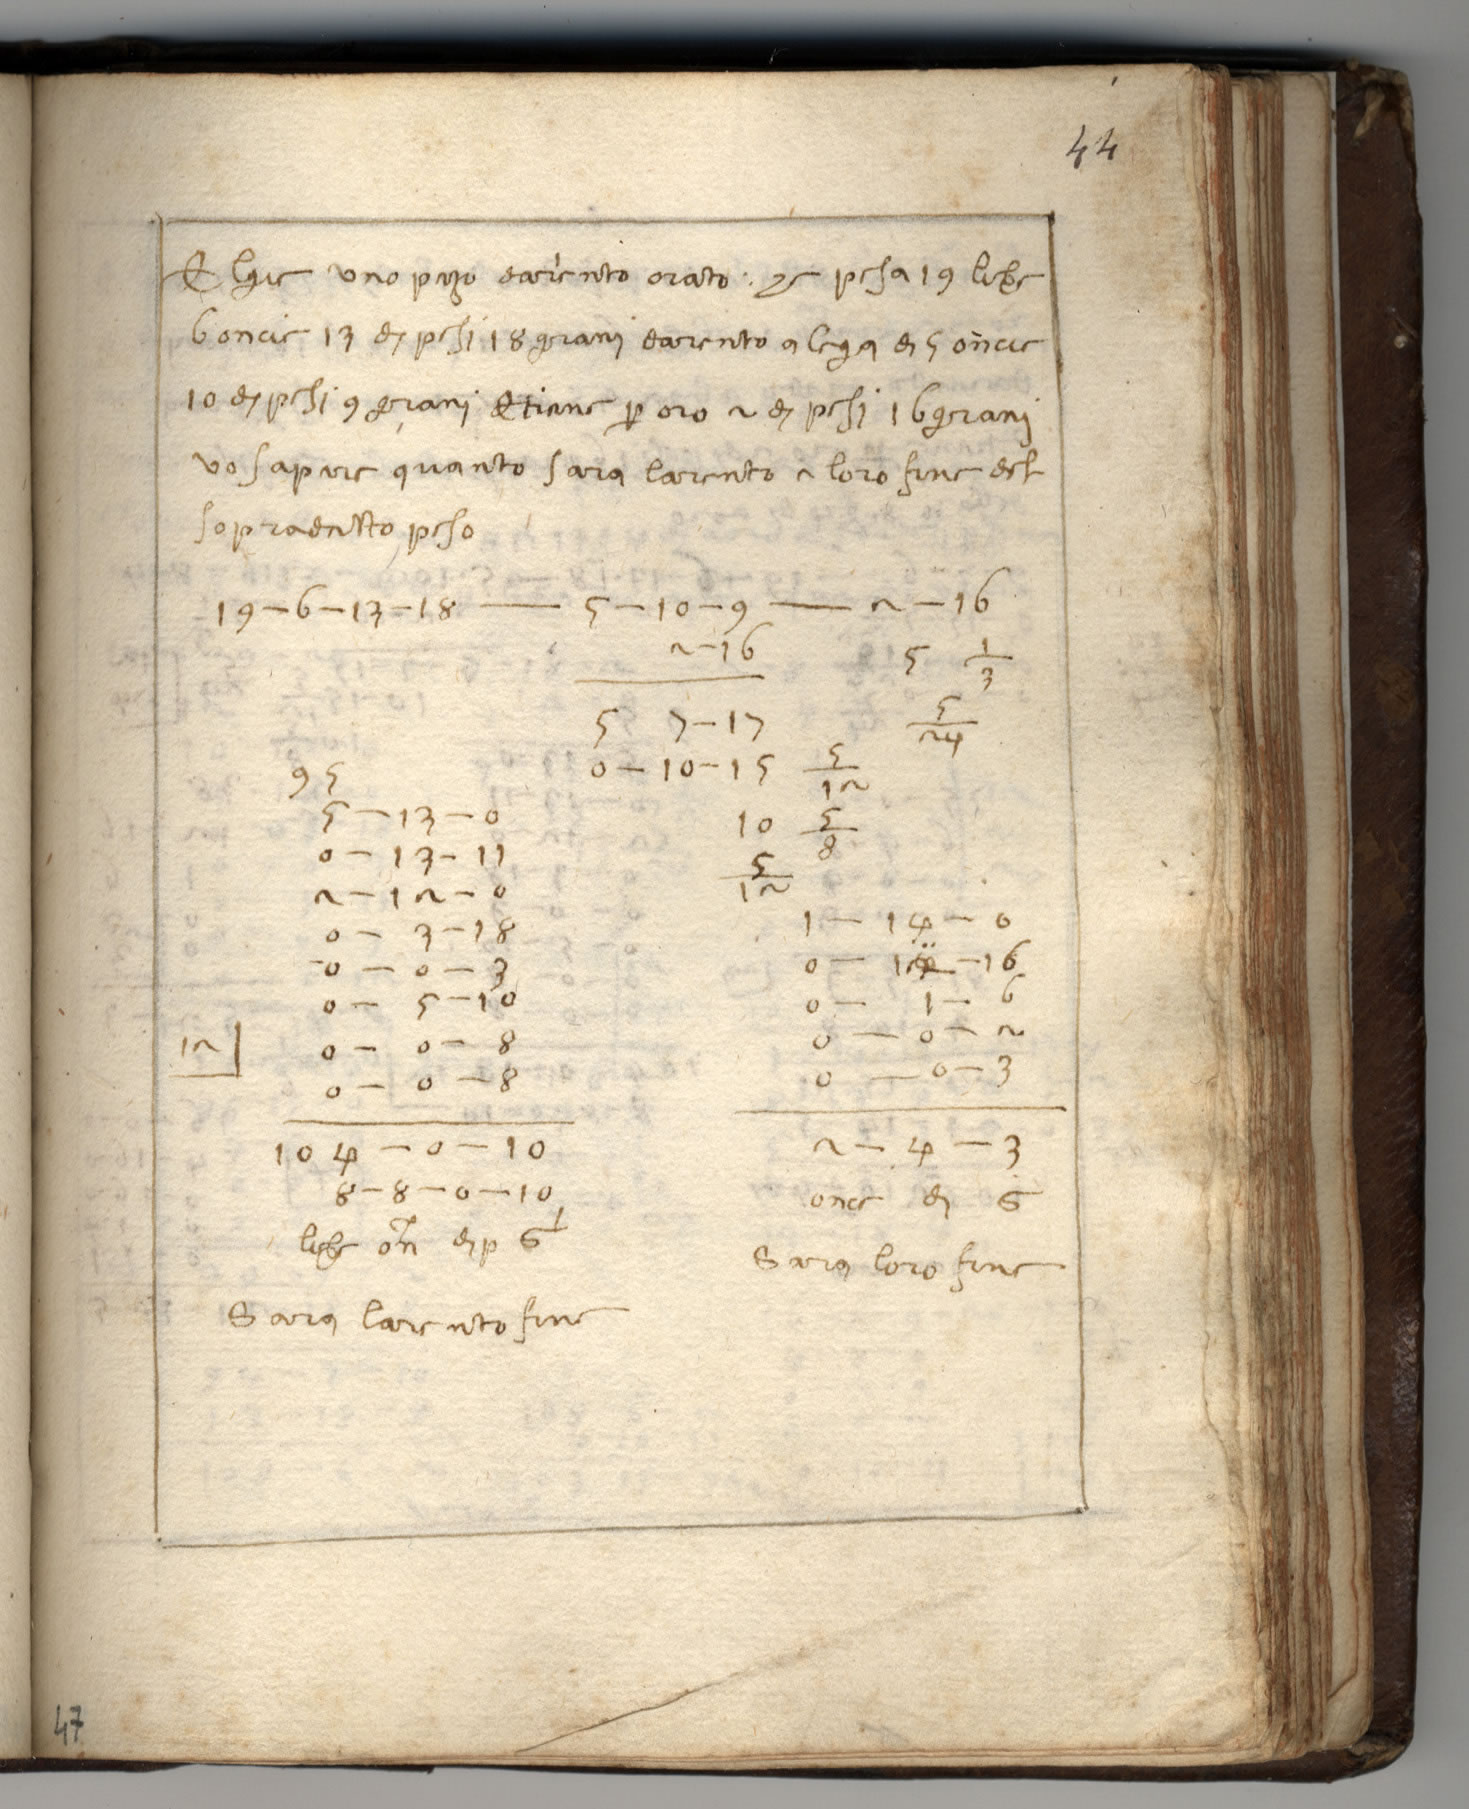 44
E lgie uno pezo darĩento orato · che pesa 19 libre
6 oncie 13 d pesi 18 grani darento a lega di 5 oncie
10 d pesi 9 grani & tiene p oro 2 d pesi 16 grani
vo sapere quanto sara larento e loro fine del
sopradeitto peso
19 — 6 — 13 — 18 —— 5 — 10 — 9 —— 2 — 16
2 — 16
5 1/3
5 7 — 17
5/24
0 — 10 — 15 5/12
10 5/8
5/12
95
5 — 13 — 0
0 — 13 — 11
2 — 12 — 0
0 — 3 — 18
0 — 0 — 3
0 — 5 — 10
12|
0 — 0 — 8
0 — 0 — 8
104 — 0 — 10
8 — 8 — 0 — 10
libre on d p G
Sara larento fine
1 — 14 — 0
0 — — 16
0 — 1 — 6
0 — 0 — 2
0 — 0 — 3
2 — 4 — 3
once d G
Sara loro fine
47